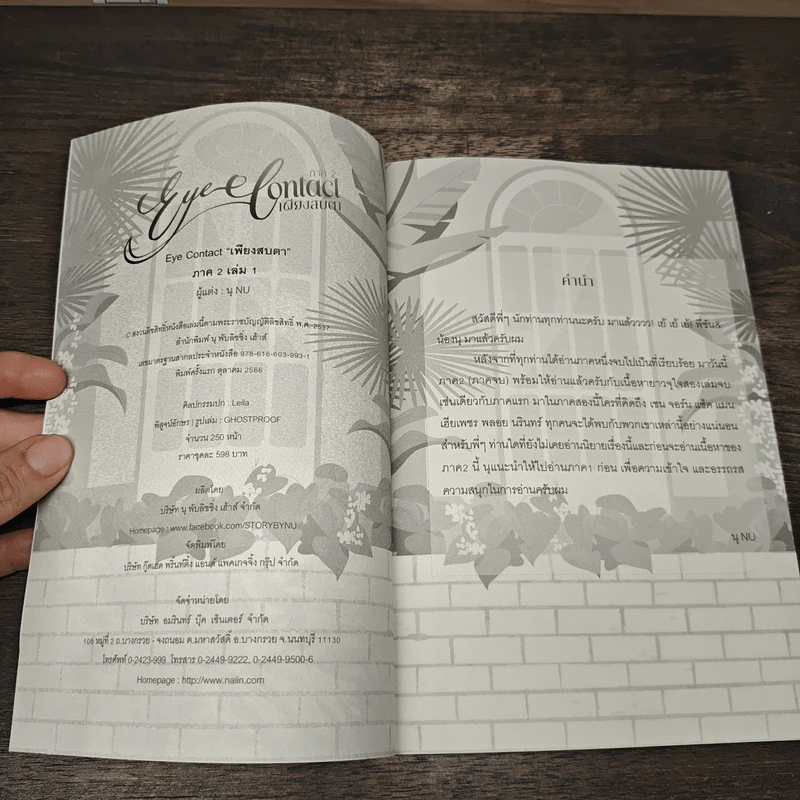 ภาค 2
Eye Contact
เพียงสบตา
Eye Contact "เพียงสบตา"
ภาค 2 เล่ม 1
ผู้แต่ง : นุ NU
© สงวนลิขสิทธิ์หนังสือเล่มนี้ตามพระราชบัญญัติลิขสิทธิ์ พ.ศ. 2537
สำนักพิมพ์ นุ พับลิชชิ่ง เฮ้าส์
เลขมาตรฐานสากลประจำหนังสือ 978-616-603-993-1
พิมพ์ครั้งแรก ตุลาคม 2566
ศิลปกรรมปก : Leila
พิสูจน์อักษร | รูปเล่ม : GHOSTPROOF
จำนวน 250 หน้า
ราคาชุดละ 598 บาท
ผลิตโดย
บริษัท นุ พับลิชชิ่ง เฮ้าส์ จำกัด
Homepage : www.facebook.com/STORYBYNU
จัดพิมพ์โดย
บริษัท กู๊ดเฮ็ด พริ้นท์ติ้ง แอนด์ แพคเกจจิ้ง กรุ๊ป จำกัด
จัดจำหน่ายโดย
บริษัท อมรินทร์ บุ๊ค เซ็นเตอร์ จำกัด
108 หมู่ที่ 2 ถ.บางกรวย - จงถนอม ต.มหาสวัสดิ์ อ.บางกรวย จ.นนทบุรี 11130
โทรศัพท์ 0-2423-999 โทรสาร 0-2449-9222, 0-2449-9500-6
Homepage : http://www.naiin.com
คำนำ
สวัสดีพี่ๆ นักท่านทุกท่านนะครับ มาแล้วววว! เย้ เย้ เย้! พี่ซัน&
น้องนุ มาแล้วครับผม
หลังจากที่ทุกท่านได้อ่านภาคหนึ่งจบไปเป็นที่เรียบร้อย มาวันนี้
ภาค2 (ภาคจบ) พร้อมให้อ่านแล้วครับกับเนื้อหายาวจุใจสองเล่มจบ
เช่นเดียวกับภาคแรก มาในภาคสองนี้ใครที่คิดถึง เซน จอร์น แซ็ค แมน
เฮียเพชร พลอย นรินทร์ ทุกคนจะได้พบกับพวกเขาเหล่านี้อย่างแน่นอน
สำหรับพี่ๆ ท่านใดที่ยังไม่เคยอ่านนิยายเรื่องนี้และก่อนจะอ่านเนื้อหาของ
ภาค2 นี้ นุแนะนำให้ไปอ่านภาค1 ก่อน เพื่อความเข้าใจ และอรรถรส
ความสนุกในการอ่านครับผม
นุ NU